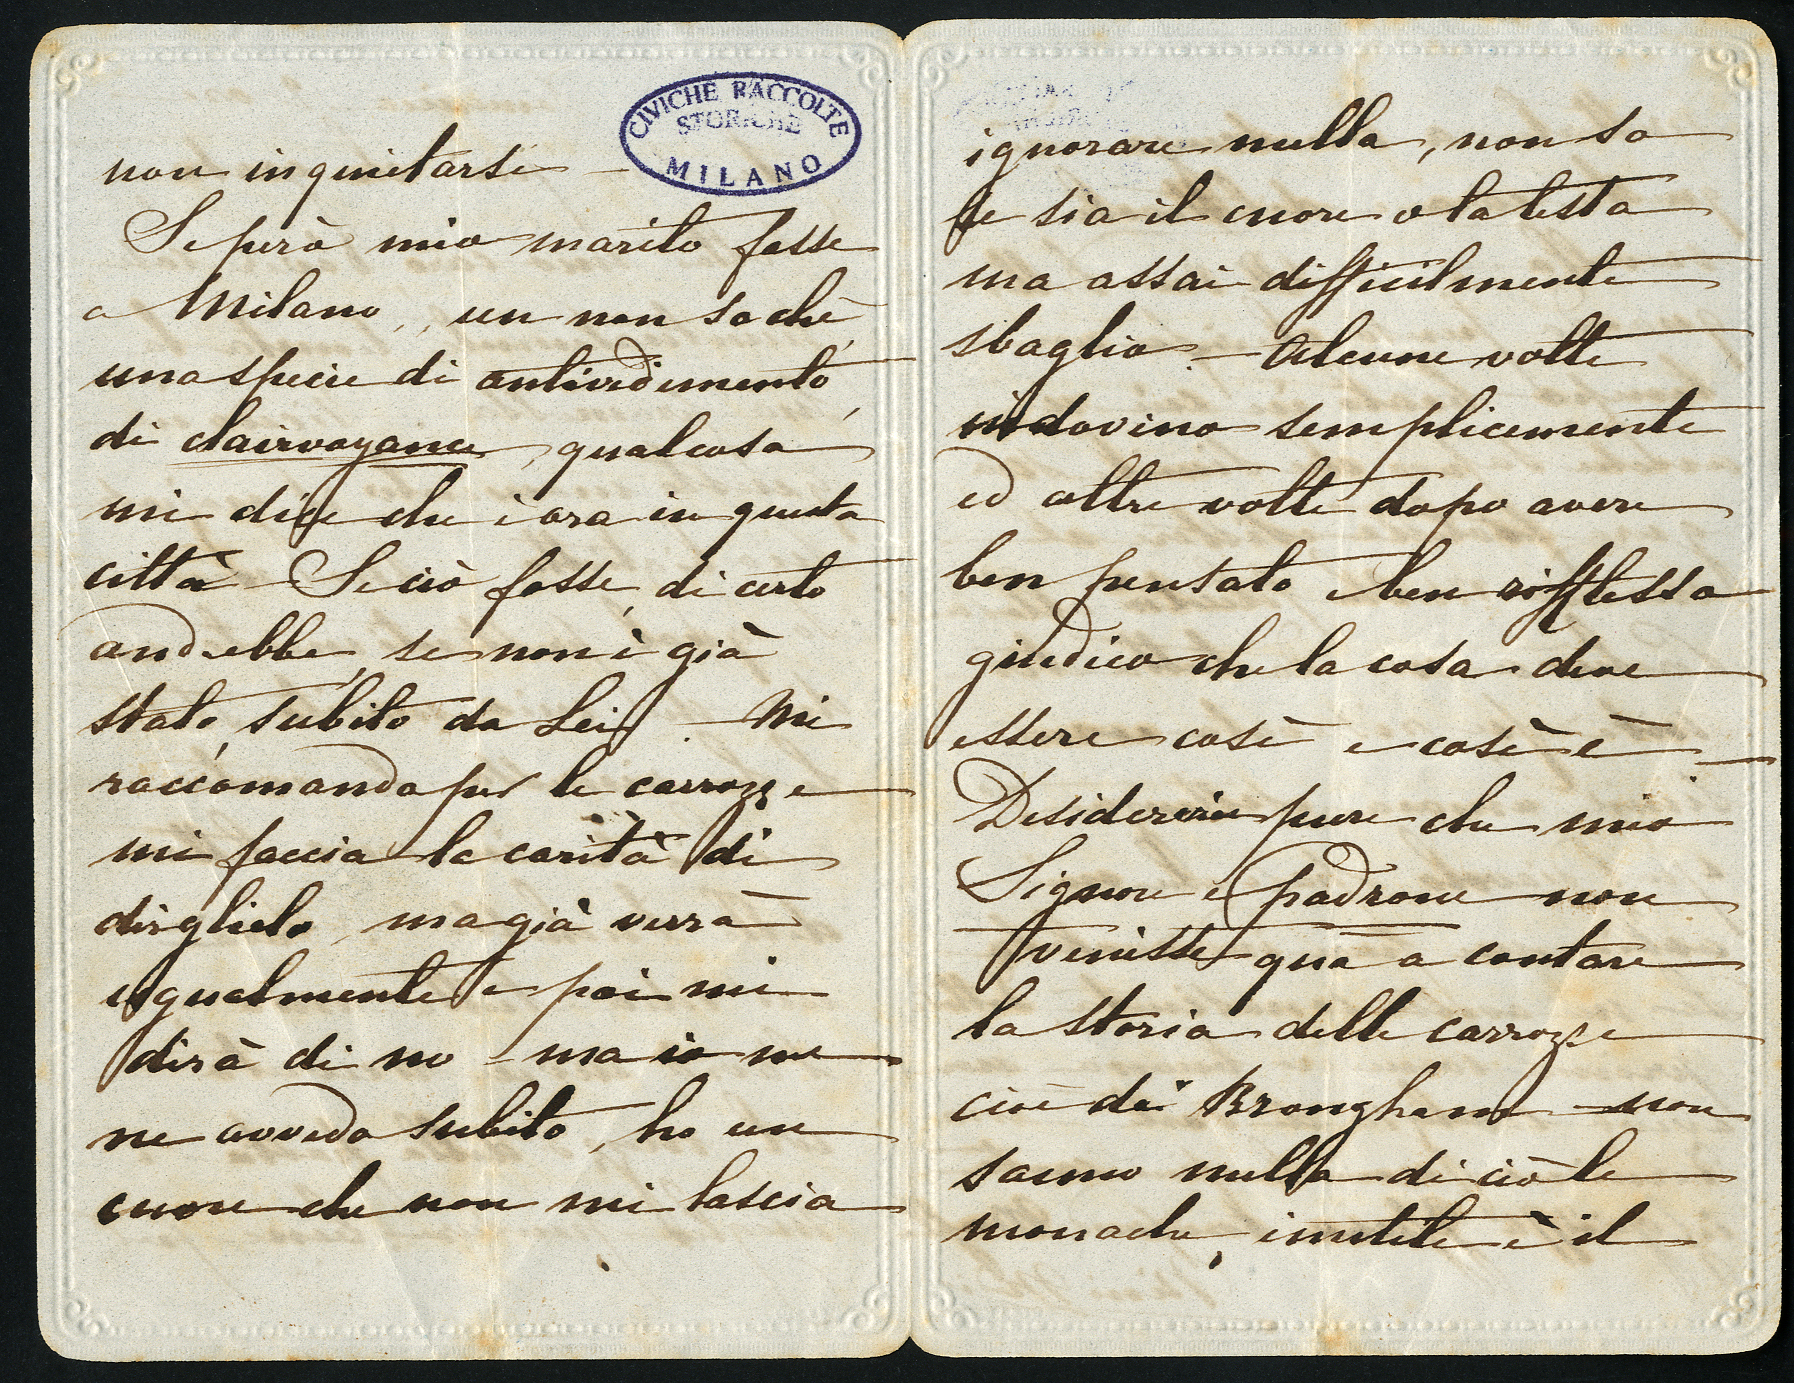 CIVICHE RACCOLTE
STORICHE
MILANO
non inquietarsi –
Se però mio marito fosse
a Milano, un non so chè
una specie di antivedimento,
di clairvoyance, qualcosa
mi dice che è ora in questa
città – Se ciò fosse, di certo
andrebbe, se non è già
stato, subito da Lei. – Mi
raccomando per le carrozze
mi faccia la carità di
dirglielo, ma già verrà
ugualmente e poi mi
dirà di no – ma io me
ne avvedo subito, ho un
cuore che non mi lascia
ignorare nulla, non so
se sia il cuore o la testa
ma assai difficilmente
sbaglio. – Alcune volte
indovino semplicemente
ed altre volte dopo avere
ben pensato e ben riflesso
giudico che la cosa deve
essere così e così è –
Desidererei pure che mio
Signore e padrone non
venisse quà a contare
la storia delle carrozze
cioè dei Brougham – non
sanno nulla di ciò le
monache, inutile è il